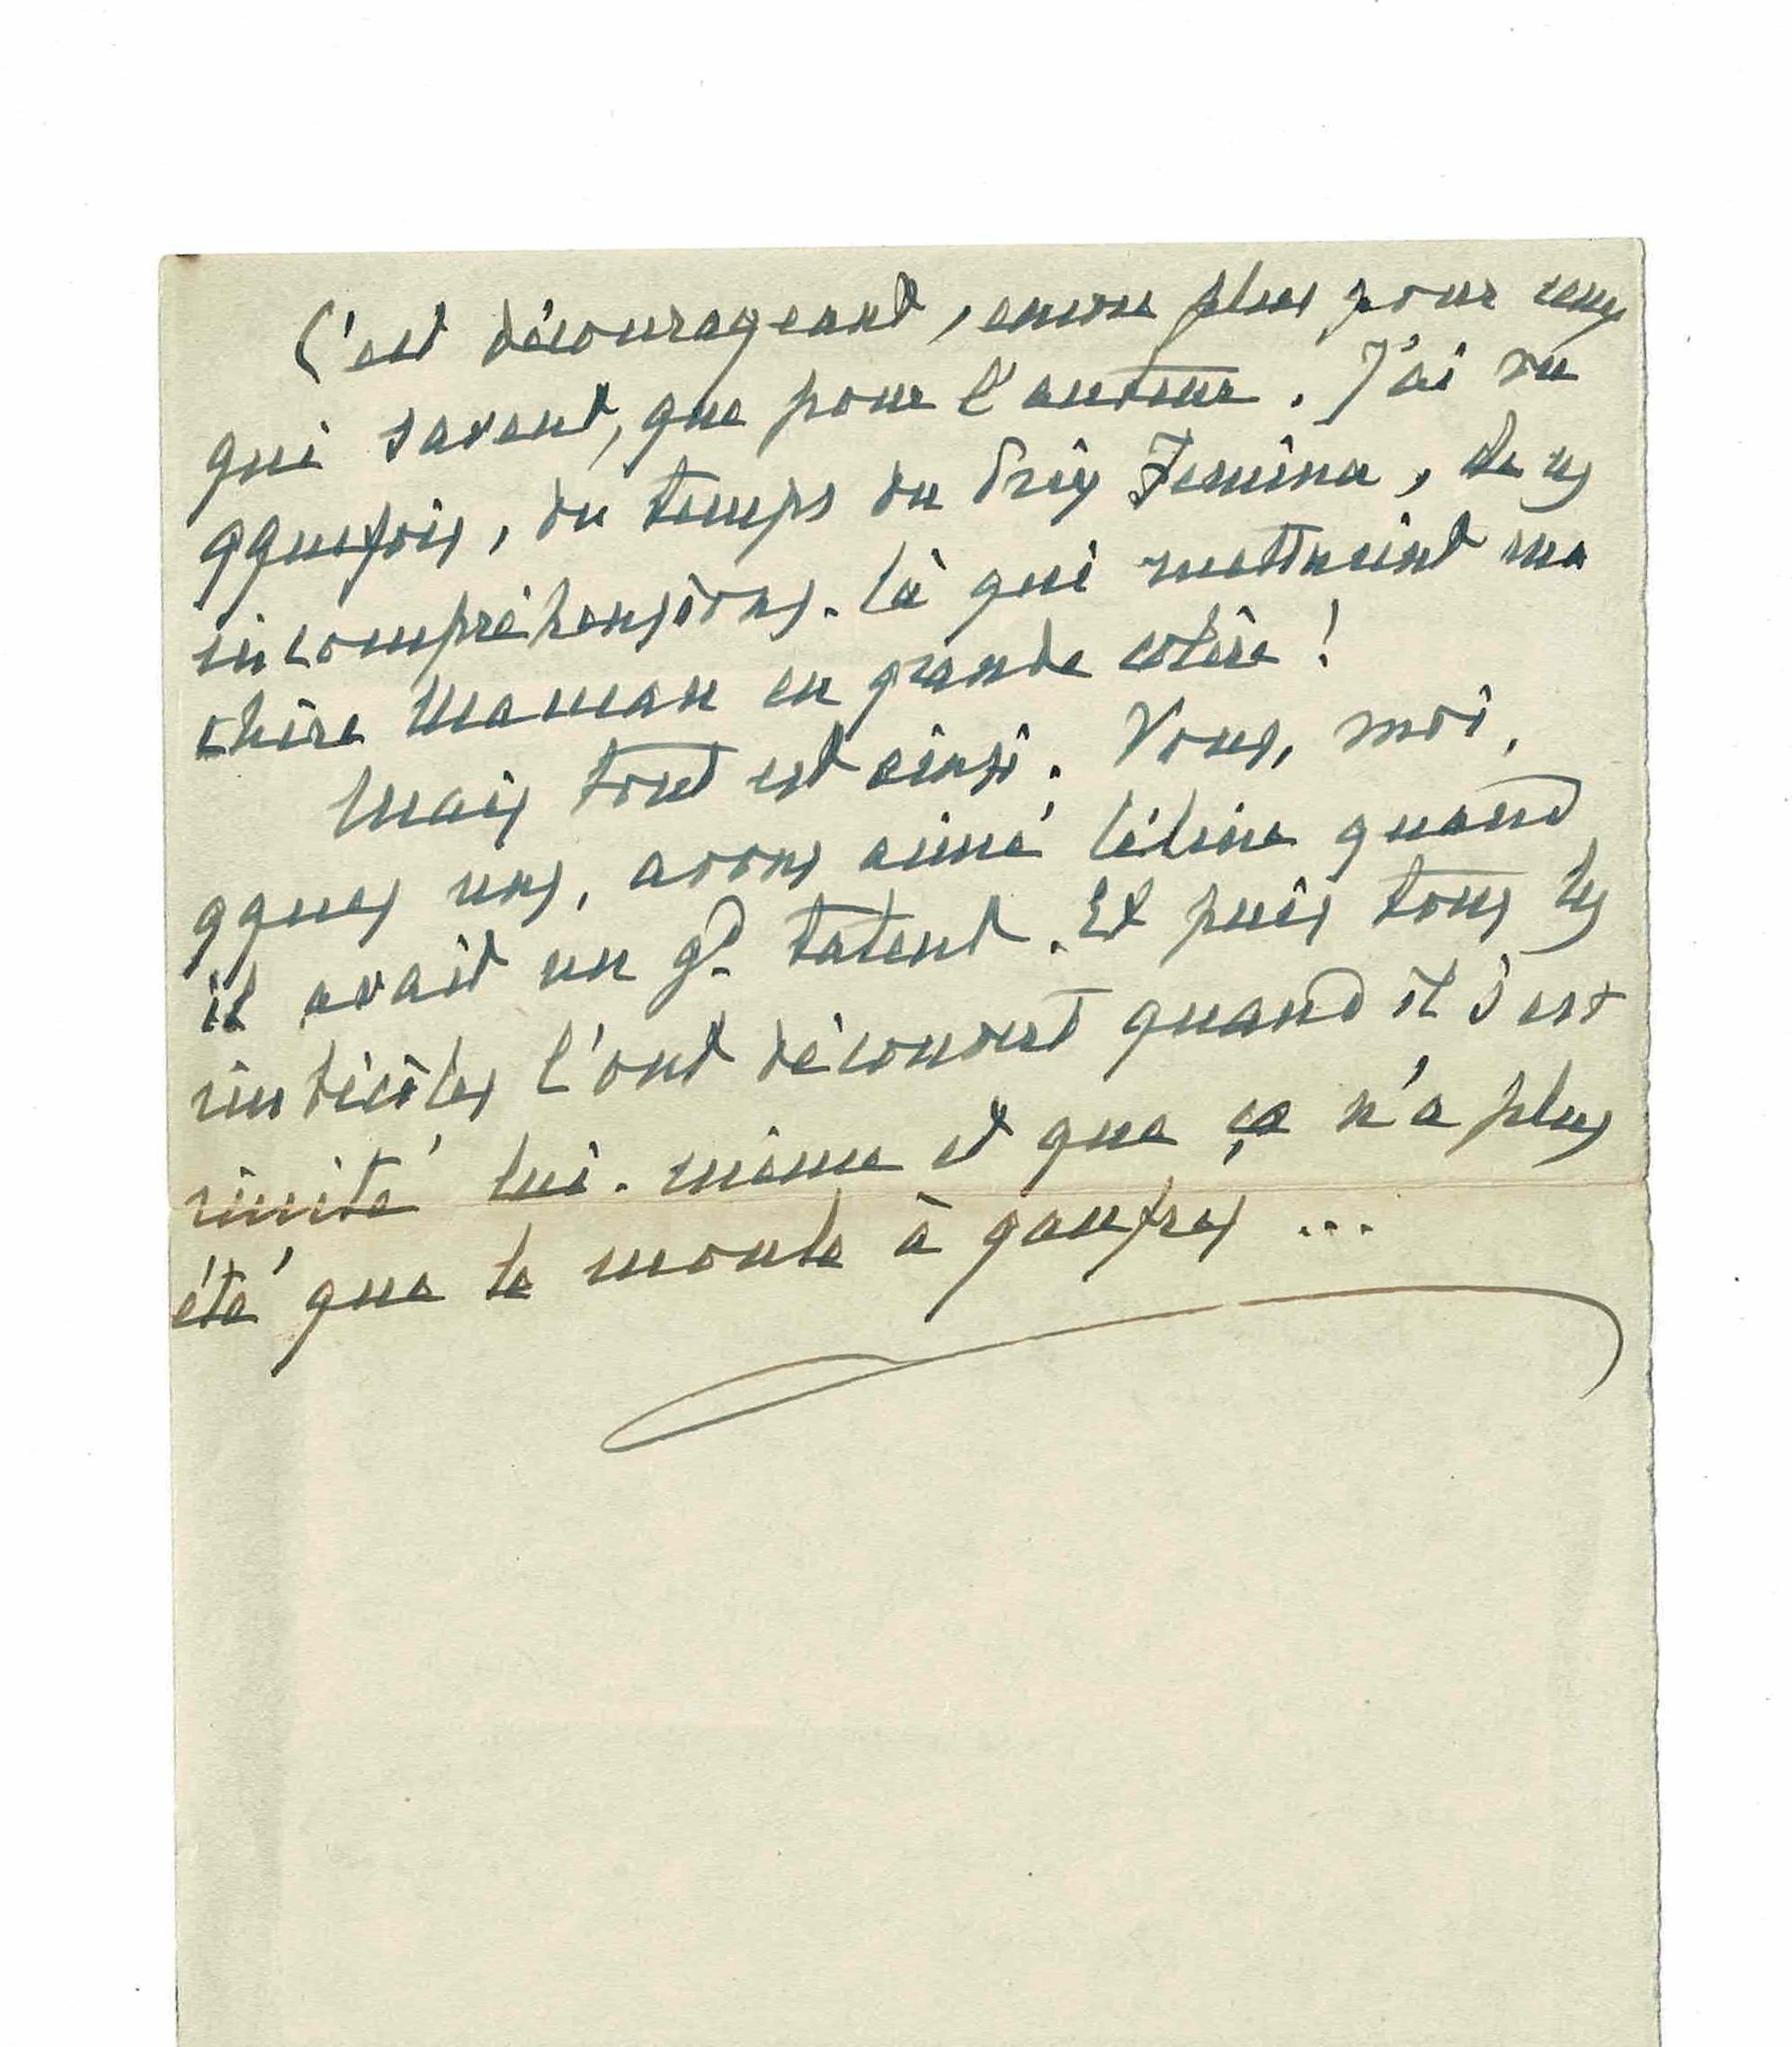 C'est décourageant, encore plus pour ceux
qui savent, que pour l'auteur. J'ai vu
qquefois, du temps du Prix Femina, de ces
incompréhensions-là qui mettaient ma
chère Maman en grande colère !
Mais tout est ainsi. Vous, moi,
qques uns, avons aimé Céline quand
il avait un gd. talent. Et puis tous les
imbéciles l'ont découvert quand il s'est
imité lui-même et que ça n'a plus
été que le moule à gaufres ...